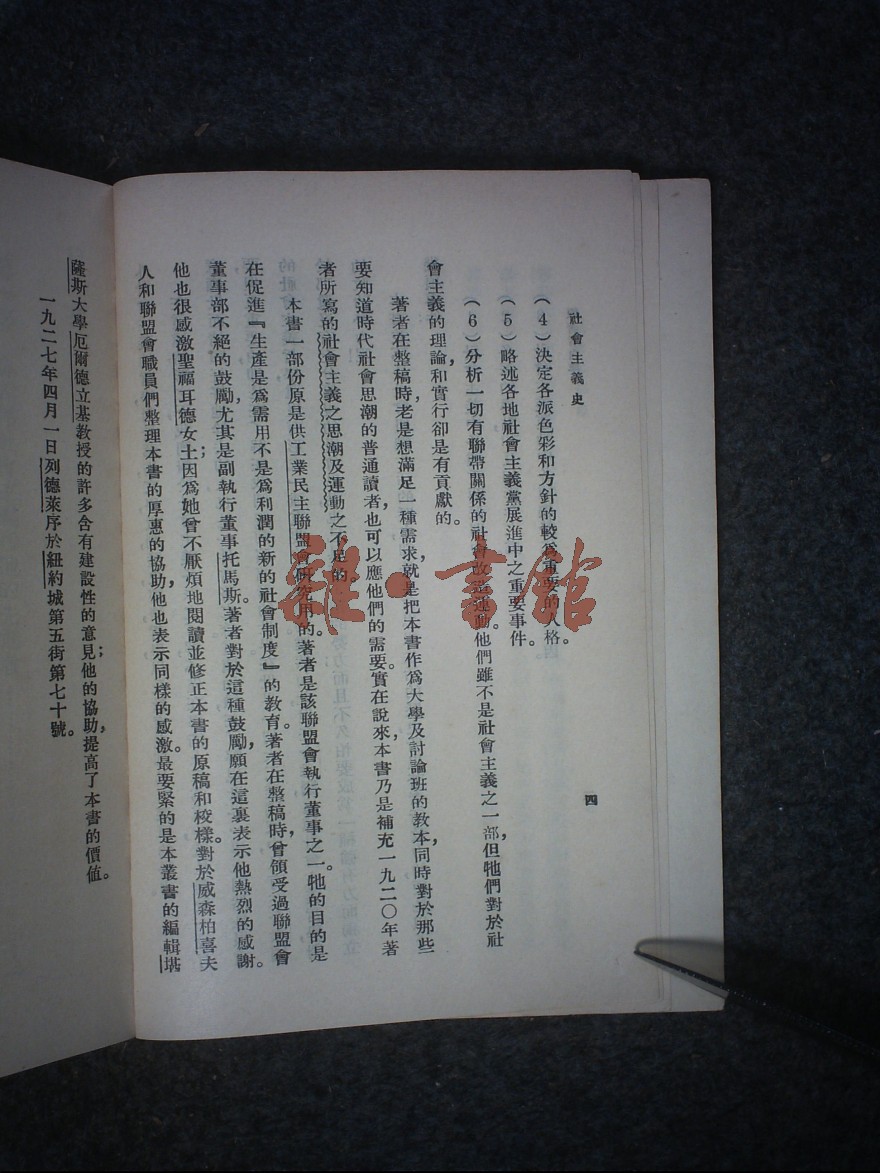 社會主義史
四
(4)決定各派色彩和方針的較爲重要的人格。
(5)略述各地社會主義黨展進中之重要事件。
(6)分析一切有聯帶關係的社會改造運動他們雖不是社會主義之一部,但牠們對於社
會主義的理論和實行卻是有貢獻的。
著者在整稿時,老是想滿足一種需求就是把本書作爲大學及討論班的教本,同時對於那些
要知道時代社會思潮的普通讀者,也可以應他們的需要。實在說來,本書乃是補充一九二〇年著
者所寫的社會主義之思潮及運動之不足的
本書一部份原是供工業民主聯盟會研究用的。著者是該聯盟會執行董事之一。牠的目的是
在促進『生產是爲需用不是爲利潤的新的社會制度』的教育。著者在整稿時,曾領受過聯盟會
董事部不絕的鼓勵,尤其是副執行董事托馬斯。著者對於這種鼓勵,願在這裏表示他熱烈的感謝。
他也很感激聖福耳德女士;因爲她曾不厭煩地閱讀並修正本書的原稿和校樣。對於威森柏喜夫
人和聯盟會職員們整理本書的厚惠的協助,他也表示同樣的感激。最要緊的是本叢書的編輯堪
薩斯大學厄爾德立基教授的許多含有建設性的意見;他的協助,提高了本書的價值。
一九二七年四月一日列德萊序於紐約城第五街第七十號。
雜·書館